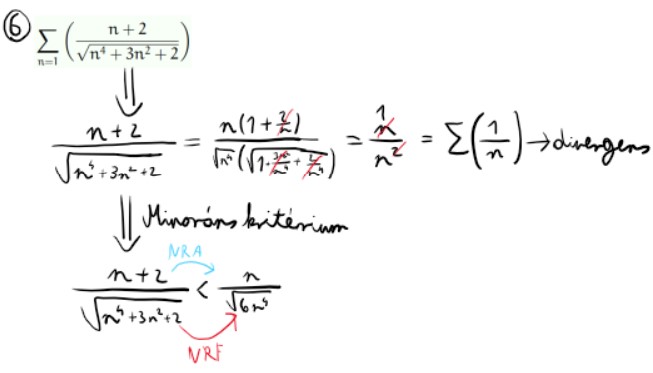 ⑥ ∑_{n=1} ( (n + 2) / √(n⁴ + 3n² + 2) )
⇓
(n+2) / √(n⁴+3n²+2) = n(1+2/n) / (√n⁴(√(1+3n²/n⁴+2/n⁴))) = n/n² = ∑(1/n) → divergens
⇓ Minoráns kritérium
NRA
(n+2) / √(n⁴+3n²+2) < n / √(6n⁴)
NRF